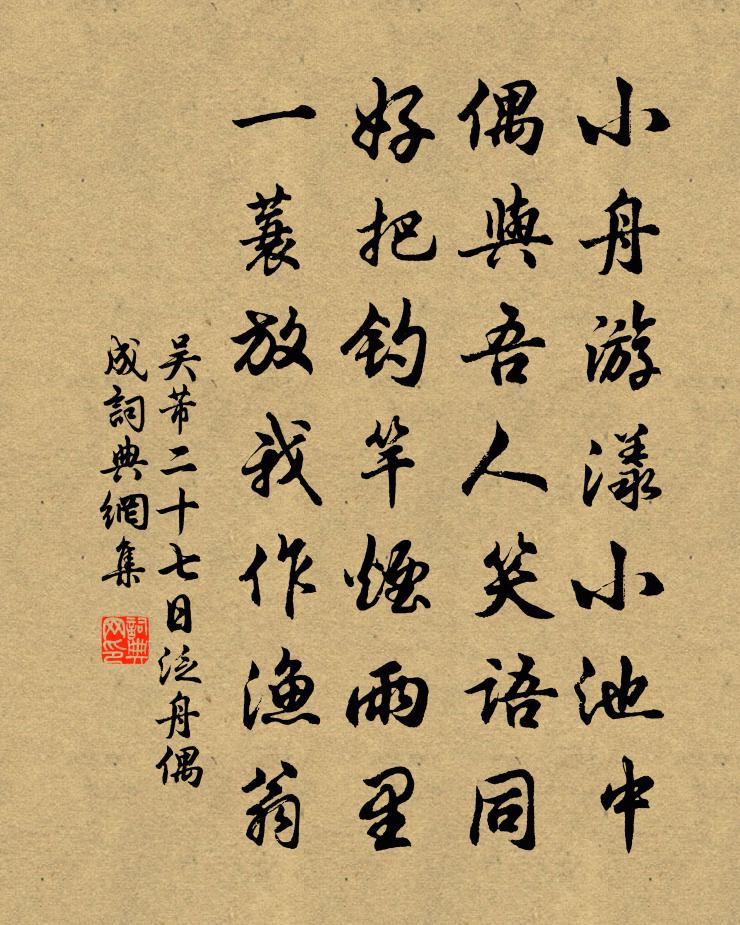 小舟游漾小池中
偶與吾人笑語同
好把釣竿煙雨里
一蓑放我作漁翁
吴芾二十七日泛舟偶
成詞典網集
詞典網印